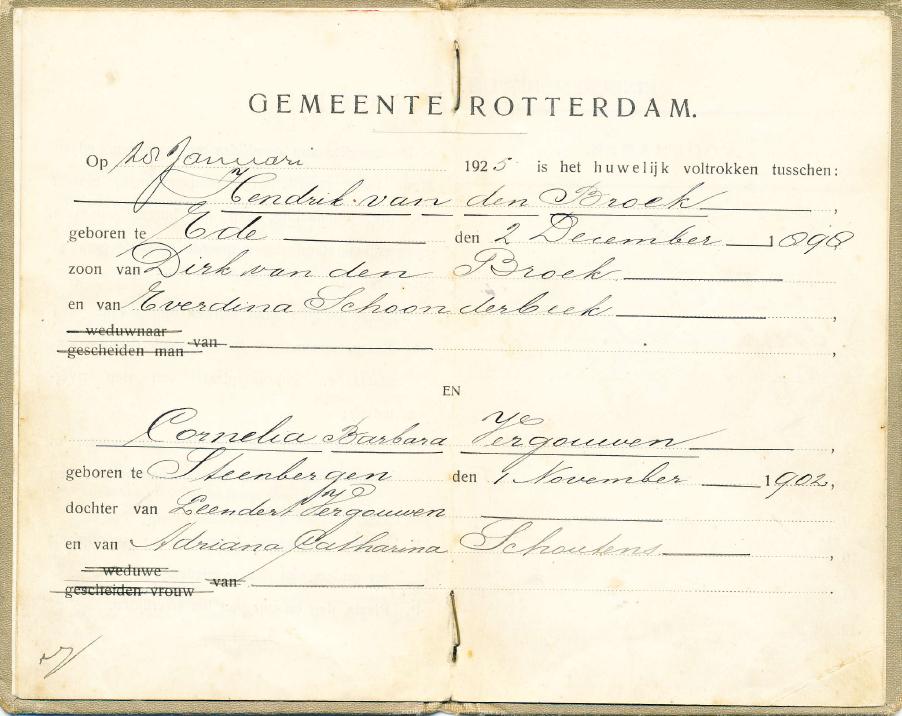 GEMEENTE ROTTERDAM.
Op 28 Januari 1925 is het huwelijk voltrokken tusschen:
Hendrik van den Broek,
geboren te Ede den 2 December 1898
zoon van Dirk van den Broek
en van Everdina Schoonderbeek,
weduwnaar
gescheiden man van,
EN
Cornelia Barbara Vergouwen,
geboren te Steenbergen den 1 November 1902,
dochter van Leendert Vergouwen
en van Adriana Catharina Schoutens,
weduwe
gescheiden vrouw van.